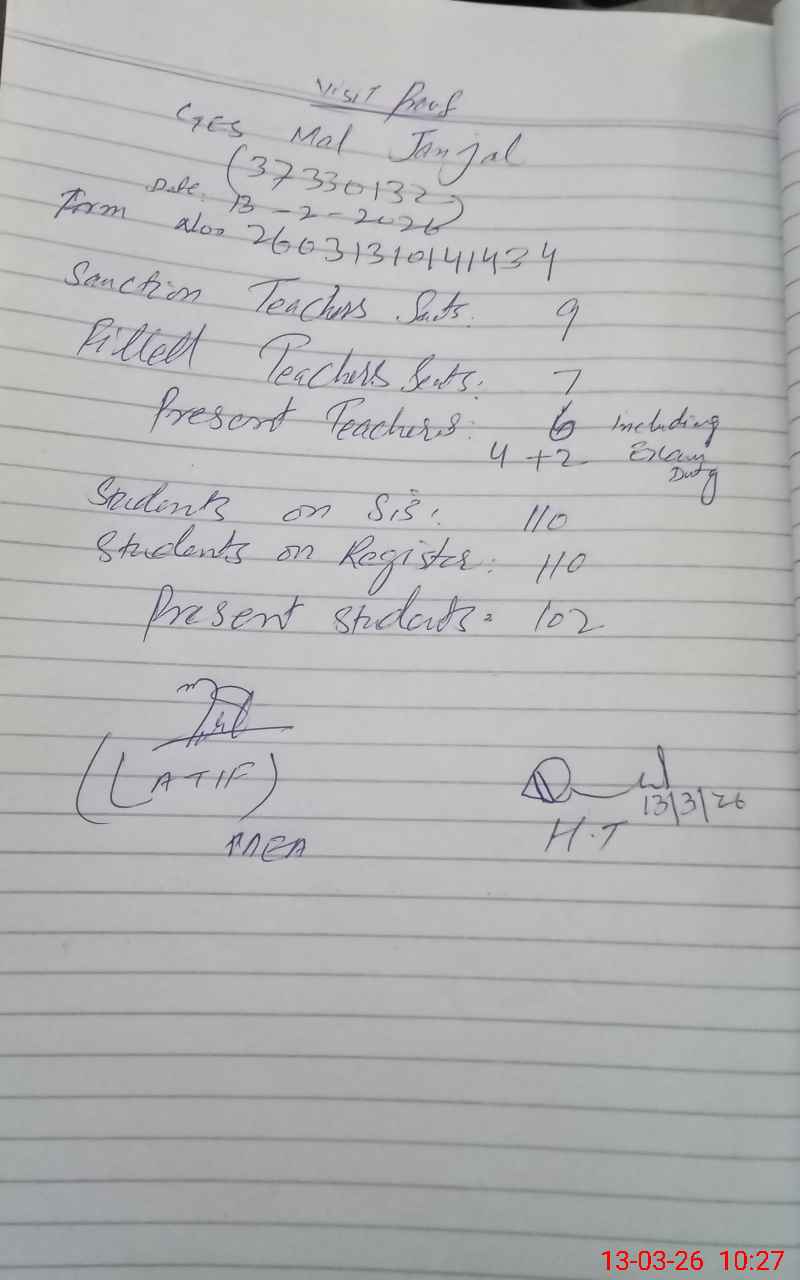 Visit Proof
GES Mal Janjal
(37330132)
Date: 13-2-2026
Form No= 26031310141434
Sanction Teachers Seats: 9
Filled Teachers Seats: 7
Present Teachers: 6 including
4 +2 Exam
Duty
Students on SIS: 110
Students on Register: 110
Present Students= 102
(LATIF)
MEA
13/3/26
H.T
13-03-26 10:27